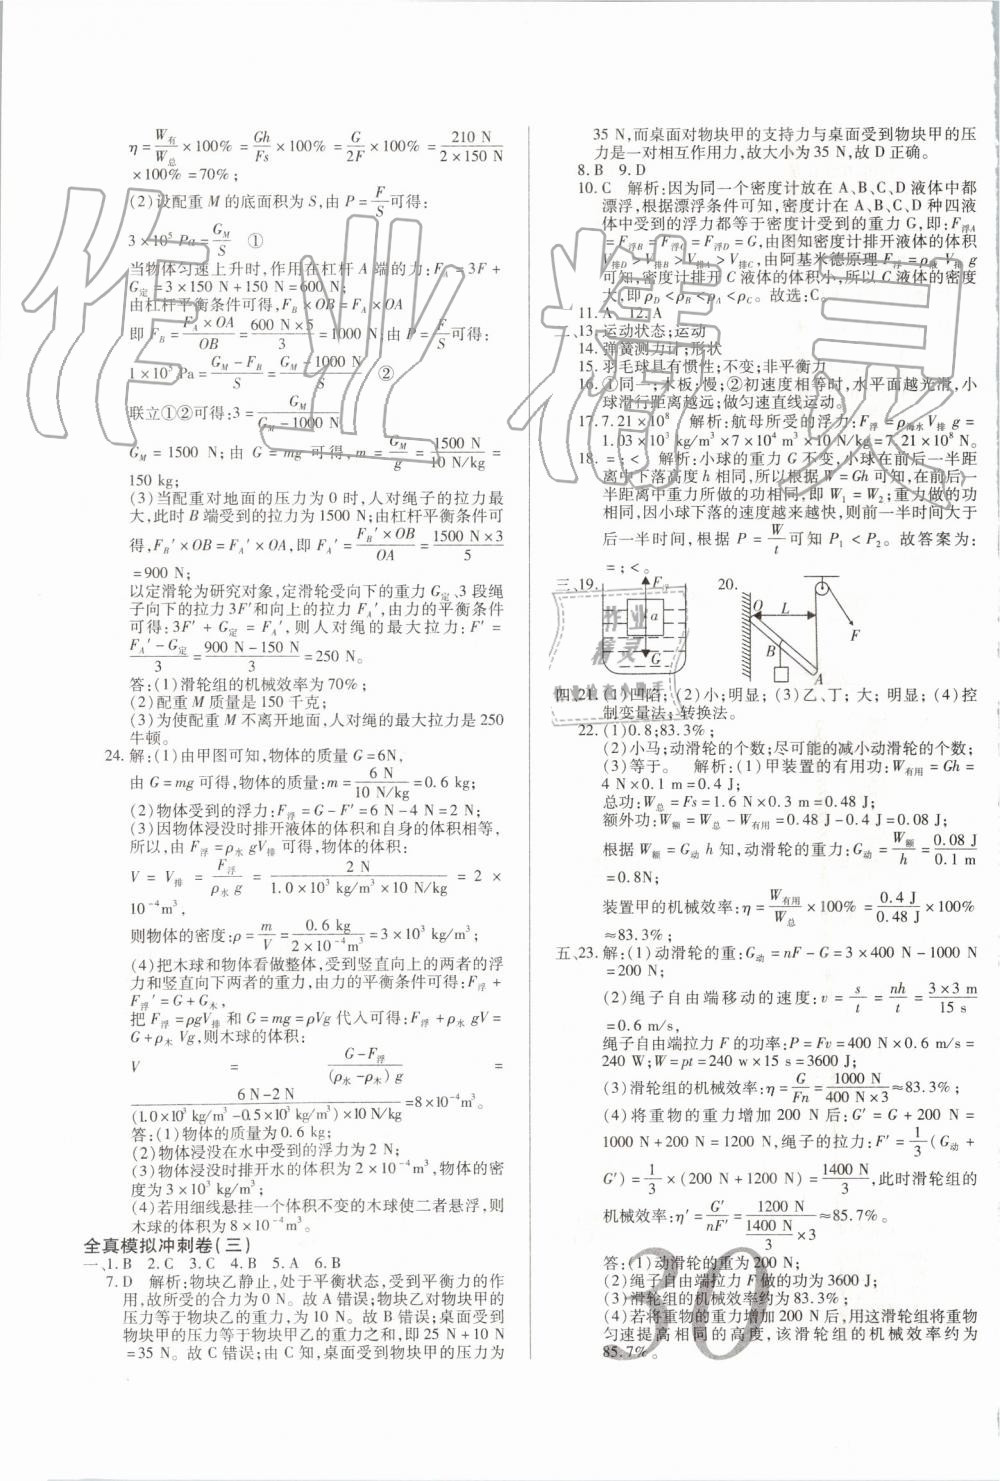 η=W有/W总×100%=Gh/Fs×100%=G/2F×100%=210 N/(2×150 N)
×100%=70%;
(2)设配重M的底面积为S,由P=F/S可得:
3×10⁵ Pa=G_M/S ①
当物体匀速上升时,作用在杠杆A端的力:F_A=3F+
G定=3×150 N+150 N=600 N;
由杠杆平衡条件可得,F_B×OB=F_A×OA
即F_B=F_A×OA/OB=600 N×5/3=1000 N;由P=F/S可得:
1×10⁵Pa=(G_M-F_B)/S=(G_M-1000 N)/S ②
联立①②可得:3=G_M/(G_M-1000 N)
G_M=1500 N;由G=mg可得,m=G_M/g=1500 N/(10 N/kg)=
150 kg;
(3)当配重对地面的压力为0时,人对绳子的拉力最
大,此时B端受到的拉力为1500 N;由杠杆平衡条件可
得,F_B′×OB=F_A′×OA,即F_A′=F_B′×OB/OA=1500 N×3/5
=900 N;
以定滑轮为研究对象,定滑轮受向下的重力G定、3段绳
子向下的拉力3F′和向上的拉力F_A′,由力的平衡条件
可得:3F′+G定=F_A′,则人对绳的最大拉力:F′=
(F_A′-G定)/3=(900 N-150 N)/3=250 N。
答:(1)滑轮组的机械效率为70%;
(2)配重M质量是150千克;
(3)为使配重M不离开地面,人对绳的最大拉力是250
牛顿。
24.解:(1)由甲图可知,物体的质量G=6N,
由G=mg可得,物体的质量:m=6 N/(10 N/kg)=0.6 kg;
(2)物体受到的浮力:F浮=G-F′=6 N-4 N=2 N;
(3)因物体浸没时排开液体的体积和自身的体积相等,
所以,由F浮=ρ水gV排可得,物体的体积:
V=V排=F浮/(ρ水g)=2 N/(1.0×10³ kg/m³×10 N/kg)=2×
10⁻⁴m³,
则物体的密度:ρ=m/V=0.6 kg/(2×10⁻⁴m³)=3×10³ kg/m³;
(4)把木球和物体看做整体,受到竖直向上的两者的浮
力和竖直向下两者的重力,由力的平衡条件可得:F浮+
F浮′=G+G木,
把F浮=ρgV排和G=mg=ρVg代入可得:F浮+ρ水gV=
G+ρ木Vg,则木球的体积:
V=(G-F浮)/((ρ水-ρ木)g)=
(6 N-2 N)/((1.0×10³ kg/m³-0.5×10³ kg/m³)×10 N/kg)=8×10⁻⁴m³。
答:(1)物体的质量为0.6 kg;
(2)物体浸没在水中受到的浮力为2 N;
(3)物体浸没时排开水的体积为2×10⁻⁴m³,物体的密
度为3×10³ kg/m³;
(4)若用细线悬挂一个体积不变的木球使二者悬浮,则
木球的体积为8×10⁻⁴m³。
全真模拟冲刺卷(三)
一、1.B 2.C 3.C 4.B 5.A 6.B
7.D 解析:物块乙静止,处于平衡状态,受到平衡力的作
用,故所受的合力为0 N。故A错误;物块乙对物块甲的
压力等于物块乙的重力,为10 N。故B错误;桌面受到
物块甲的压力等于物块甲乙的重力之和,即25 N+10 N
=35 N。故C错误;由C知,桌面受到物块甲的压力为
35 N,而桌面对物块甲的支持力与桌面受到物块甲的压
力是一对相互作用力,故大小为35 N,故D正确。
8.B 9.D
10.C 解析:因为同一个密度计放在A、B、C、D液体中都
漂浮,根据漂浮条件可知,密度计在A、B、C、D种四液
体中受到的浮力都等于密度计受到的重力G,即:F浮A
=F浮B=F浮C=F浮D=G,由图知密度计排开液体的体积
V排D>V排B>V排A>V排C,由阿基米德原理F浮=ρ液V排g
可知,密度计排开C液体的体积小,所以C液体的密度
大,即ρD<ρB<ρA<ρC。故选:C。
11.A 12.A
二、13.运动状态;运动
14.弹簧测力计;形状
15.羽毛球具有惯性;不变;非平衡力
16.①同一;木板;慢;②初速度相等时,水平面越光滑,小
球滑行距离越远;做匀速直线运动。
17.7.21×10⁸ 解析:航母所受的浮力:F浮=ρ海水V排g=
1.03×10³ kg/m³×7×10⁴ m³×10 N/kg=7.21×10⁸N。
18.=;< 解析:小球的重力G不变,小球在前后一半距
离中下落高度h相同,所以根据W=Gh可知,在前后一
半距离中重力所做的功相同,即W₁=W₂;重力做的功
相同,因小球下落的速度越来越快,则前一半时间大于
后一半时间,根据P=W/t可知P₁<P₂。故答案为:
=;<。
三、19. 20.
F浮
a
G
O
L
B
A
F
四、21.(1)凹陷;(2)小;明显;(3)乙、丁;大;明显;(4)控
制变量法;转换法。
22.(1)0.8;83.3%;
(2)小马;动滑轮的个数;尽可能的减小动滑轮的个数;
(3)等于。 解析:(1)甲装置的有用功:W有用=Gh=
4 N×0.1 m=0.4 J;
总功:W总=Fs=1.6 N×0.3 m=0.48 J;
额外功:W额=W总-W有用=0.48 J-0.4 J=0.08 J;
根据W额=G动h知,动滑轮的重力:G动=W额/h=0.08 J/0.1 m
=0.8N;
装置甲的机械效率:η=W有用/W总×100%=0.4 J/0.48 J×100%
≈83.3%;
五、23.解:(1)动滑轮的重:G动=nF-G=3×400 N-1000 N
=200 N;
(2)绳子自由端移动的速度:v=s/t=nh/t=3×3 m/15 s
=0.6 m/s,
绳子自由端拉力F的功率:P=Fv=400 N×0.6 m/s=
240 W;W=pt=240 w×15 s=3600 J;
(3)滑轮组的机械效率:η=G/Fn=1000 N/(400 N×3)≈83.3%;
(4)将重物的重力增加200 N后:G′=G+200 N=
1000 N+200 N=1200 N;绳子的拉力:F′=1/3(G动+
G′)=1/3×(200 N+1200 N)=1400 N/3,此时滑轮组的
机械效率:η′=G′/nF′=1200 N/(1400 N/3×3)≈85.7%。
答:(1)动滑轮的重为200 N;
(2)绳子自由端拉力F做的功为3600 J;
(3)滑轮组的机械效率约为83.3%;
(4)若将重物的重力增加200 N后,用这滑轮组将重物
匀速提高相同的高度,该滑轮组的机械效率约为
85.7%。
30
作业精灵
作业
精灵